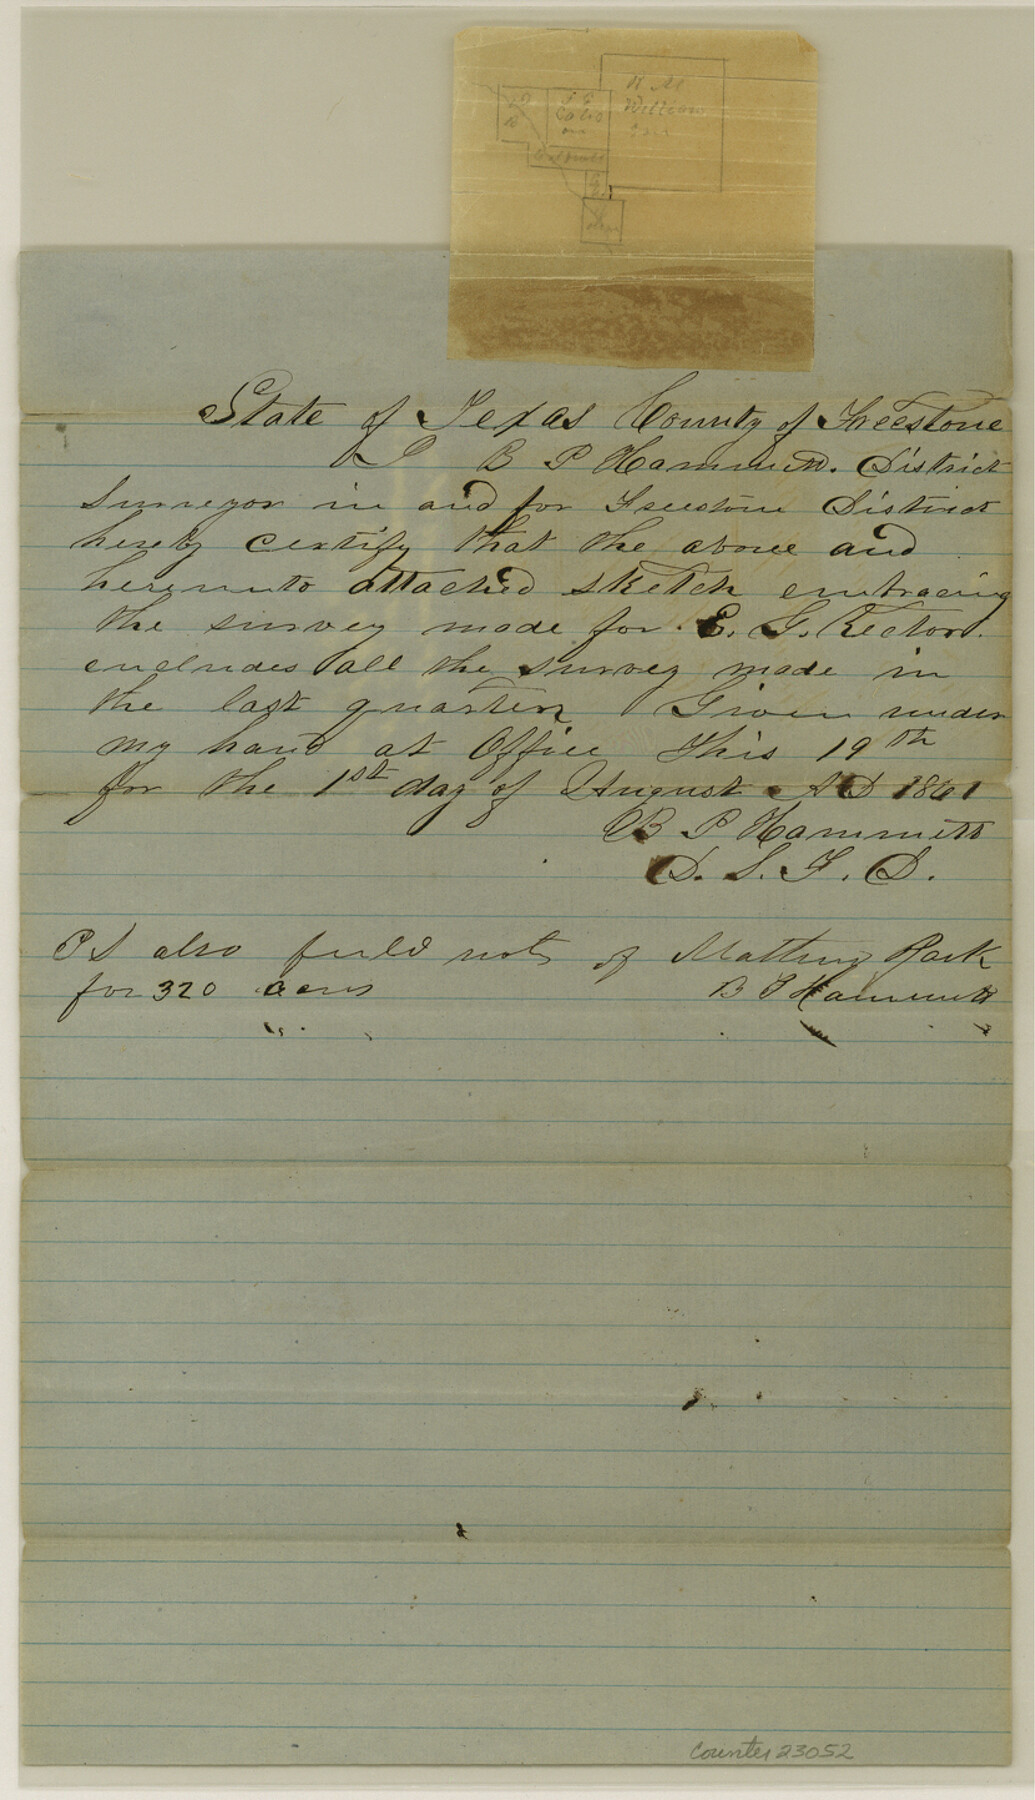 W M
Williams
State of Texas County of Freestone
I B P Hammett. District
Surveyor in and for Freestone District
hereby certify that the above and
hereunto attached sketch embracing
the survey made for E. G. Rector.
includes all the survey made in
the last quarter Given under
my hand at Office This 19th
for the 1st day of August AD 1861
B P Hammett
D. S. F. D.
PS also field nots of Mathew Park
for 320 acres B P Hammett
Counter 23052